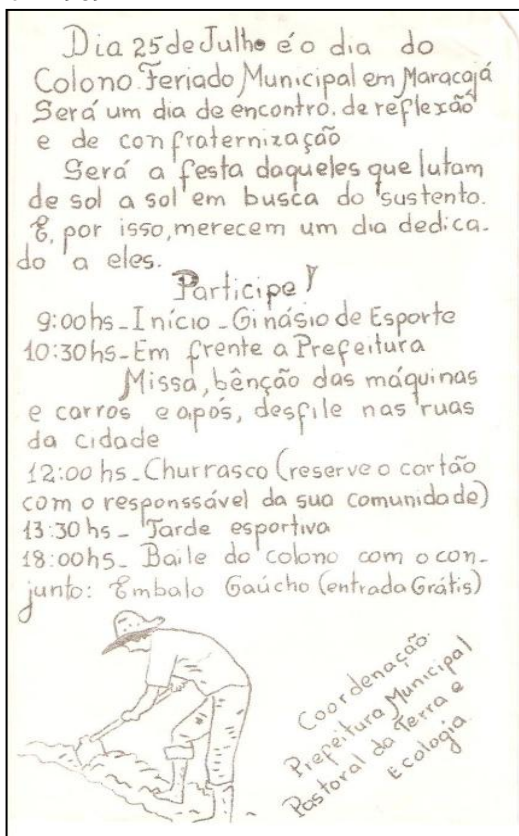 Dia 25 de Julho é o dia do
Colono. Feriado Municipal em Maracajá
Será um dia de encontro, de reflexão
e de confraternização
Será a festa daqueles que lutam
de sol a sol em busca do sustento.
E, por isso, merecem um dia dedica-
do a eles.
Participe!
9:00hs - Início - Ginásio de Esporte
10:30hs - Em frente a Prefeitura
Missa, bênção das máquinas
e carros e após, desfile nas ruas
da cidade
12:00 hs - Churrasco (reserve o cartão
com o responssável da sua comunidade)
13:30 hs - Tarde esportiva
18:00hs - Baile do colono com o con-
junto: Embalo Gaúcho (entrada Grátis)
Coordenação:
Prefeitura Municipal
Pastoral da Terra e
Ecologia.